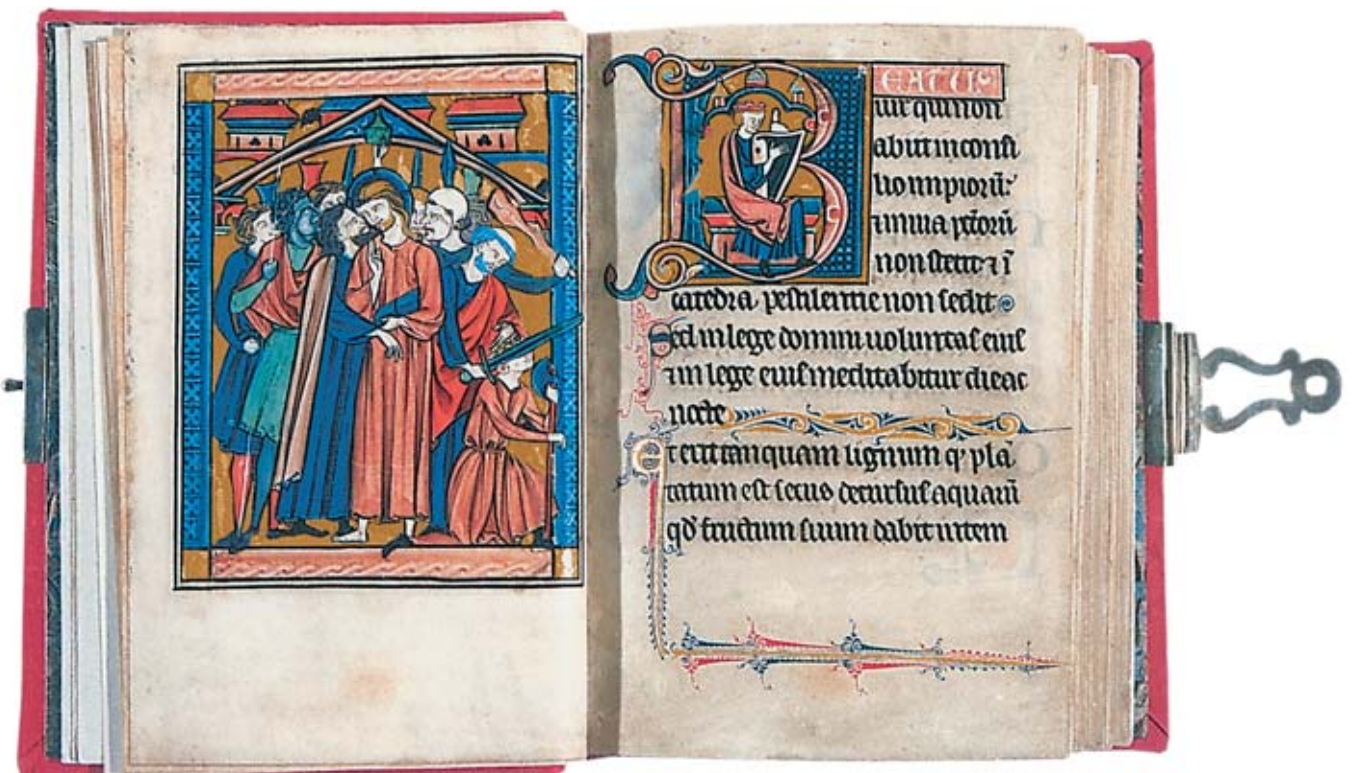 BEATUS
uir qui non
abiit in consi
lio impiorū:
⁊ in uia pctōrū
non stetit ⁊ ī
catedra pestilentie non sedit
Sed in lege domini uoluntas eius
⁊ in lege eius meditabitur die ac
nocte
Et erit tanquam lignum qͦ plā
tatum est secus decursus aquarū
qd̄ fructum suum dabit in tem